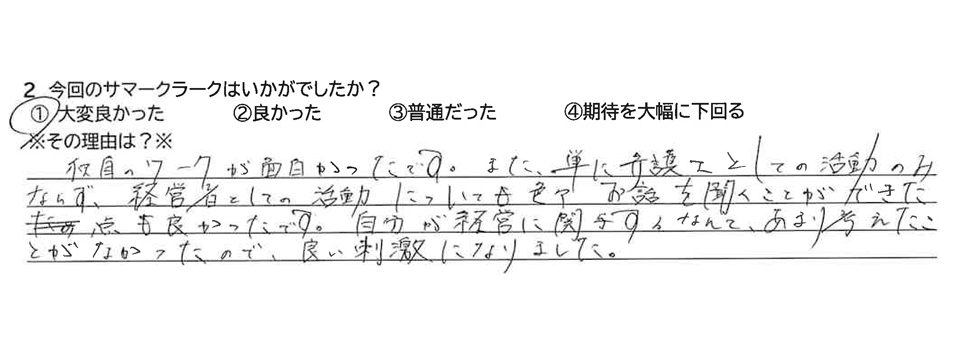 2 今回のサマークラークはいかがでしたか？
① 大変良かった ②良かった ③普通だった ④期待を大幅に下回る
※その理由は？※
独自のワークが面白かったです。また、単に弁護士としての活動のみ
ならず、経営者としての活動についても色々お話を聞くことができた
点も良かったです。自分が経営に関与するなんて、あまり考えたこ
とがなかったので、良い刺激になりました。